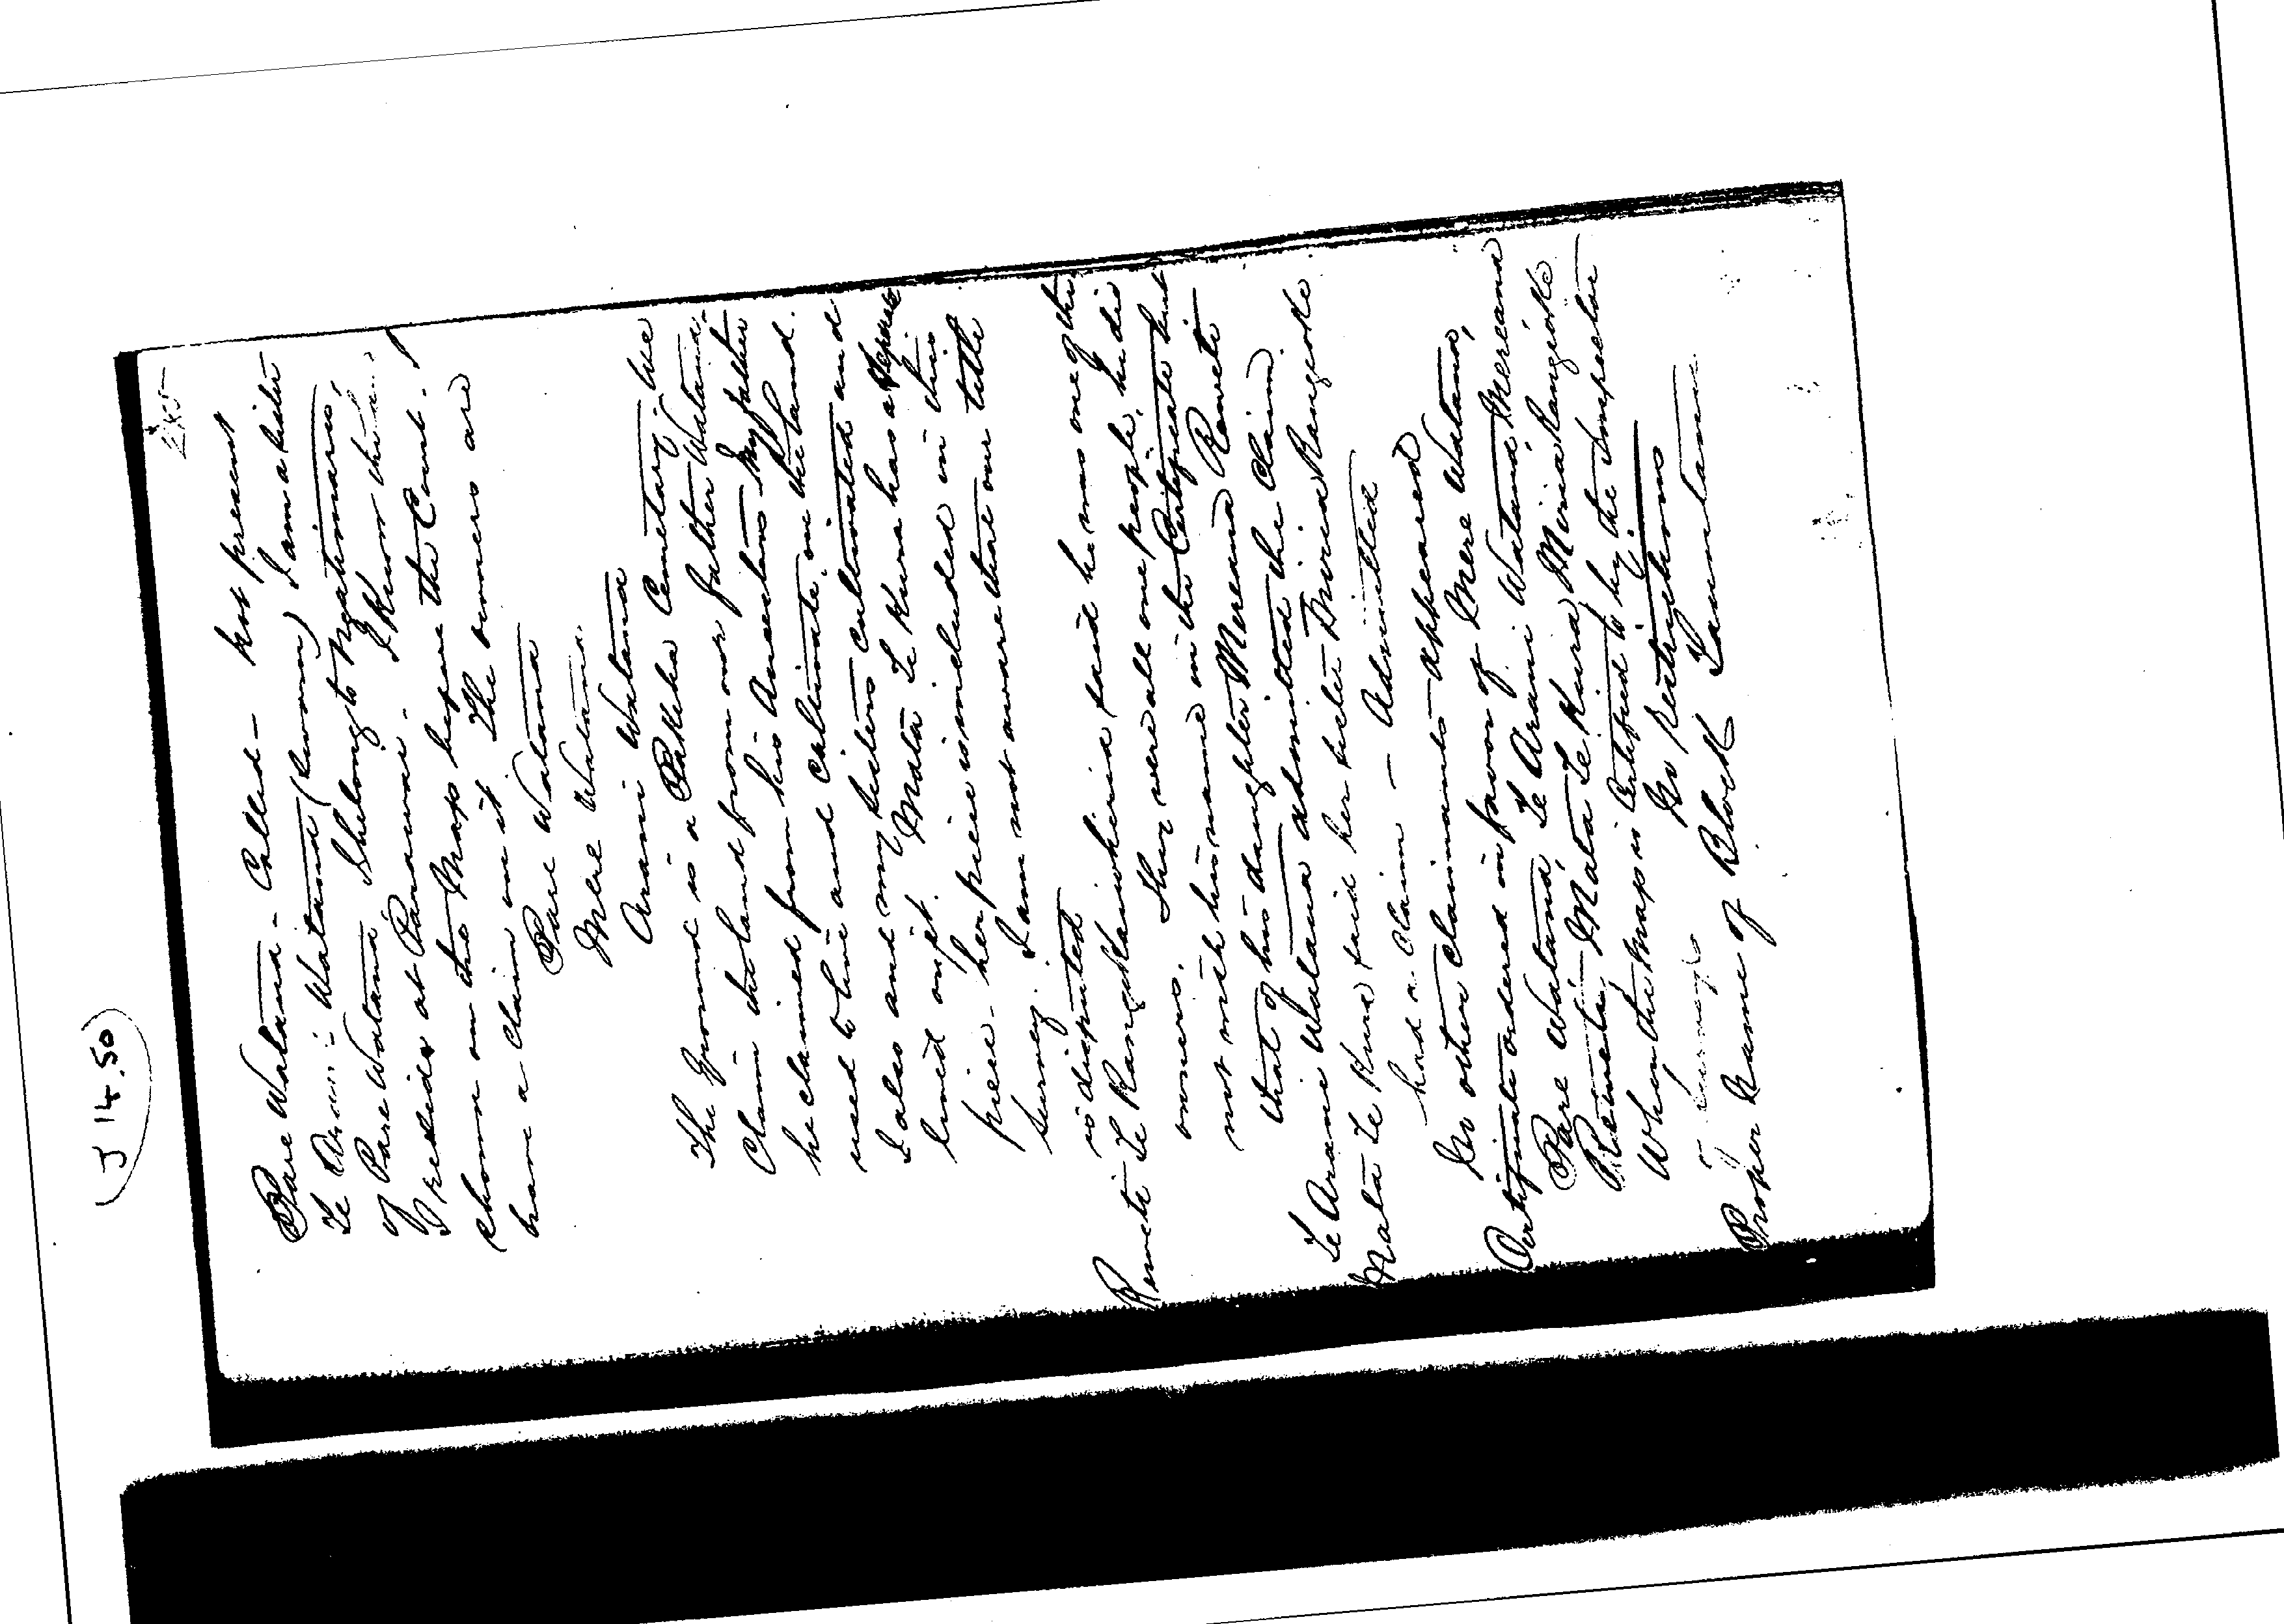 J 14.50
285
Pare Watana - Called - not present
Te Arani Watana (sworn) I am a sister
of Pare Watana I belong to Ngatimaru,
I reside at Parawai. I know the land
shown on the Map before the Court. I
have a claim on it The owners are
Pare Watana
Mere Watana.
Arani Watana
The ground is a Pakeha Cemetary. We
claim the land from our father Watana.
he claimed from his Ancestors My father
used to live and cultivate on the land.
I also and my sisters cultivated and
lived on it. Mata Te Kura has a separate
piece - her piece is included in this
survey. I am not aware that our title
is disputed
Reweti Te Rangikaiwhiria said he was one of the
owners. They were all one people, he did
not wish his name in the Certificate but
that of his daughter Mereana Reweti
Te Arani Watana admitted the claim
Mata Te Kura said her sister Miria Rangikoke
had a claim - Admitted
No other claimants appeared
Certificate ordered in favor of Mere Watana,
Pare Watana, Te Arani Watana, Mereana
Reweti, Mata Te Kura, Miria Rangikoke
When the Map is Certified to by the Inspector
of Surveys
No Restrictions
Proper Name of Block